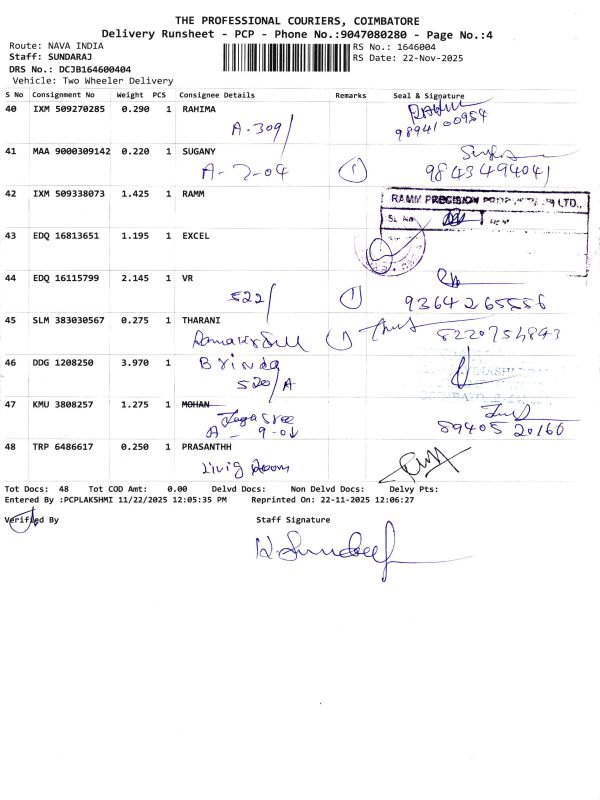 THE PROFESSIONAL COURIERS, COIMBATORE
Delivery Runsheet - PCP - Phone No.:9047080280 - Page No.:4
Route: NAVA INDIA RS No.: 1646004
Staff: SUNDARAJ RS Date: 22-Nov-2025
DRS No.: DCJB164600404
Vehicle: Two Wheeler Delivery
S No Consignment No Weight PCS Consignee Details Remarks Seal & Signature
40 IXM 509270285 0.290 1 RAHIMA
A-309/ 9894100954
41 MAA 9000309142 0.220 1 SUGANY
A-7-04 1 9843494041
42 IXM 509338073 1.425 1 RAMM
RAMM PRECISION LTD.,
SL No
43 EDQ 16813651 1.195 1 EXCEL
44 EDQ 16115799 2.145 1 VR
522/ 1 9364265556
45 SLM 383030567 0.275 1 THARANI
8220754843
46 DDG 1208250 3.970 1 Brinda
520/A
47 KMU 3808257 1.275 1 MOHAN
Jagasree
A - 9-01 89405 20160
48 TRP 6486617 0.250 1 PRASANTHH
Living Room
Tot Docs: 48 Tot COD Amt: 0.00 Delvd Docs: Non Delvd Docs: Delvy Pts:
Entered By :PCPLAKSHMI 11/22/2025 12:05:35 PM Reprinted On: 22-11-2025 12:06:27
Verified By Staff Signature